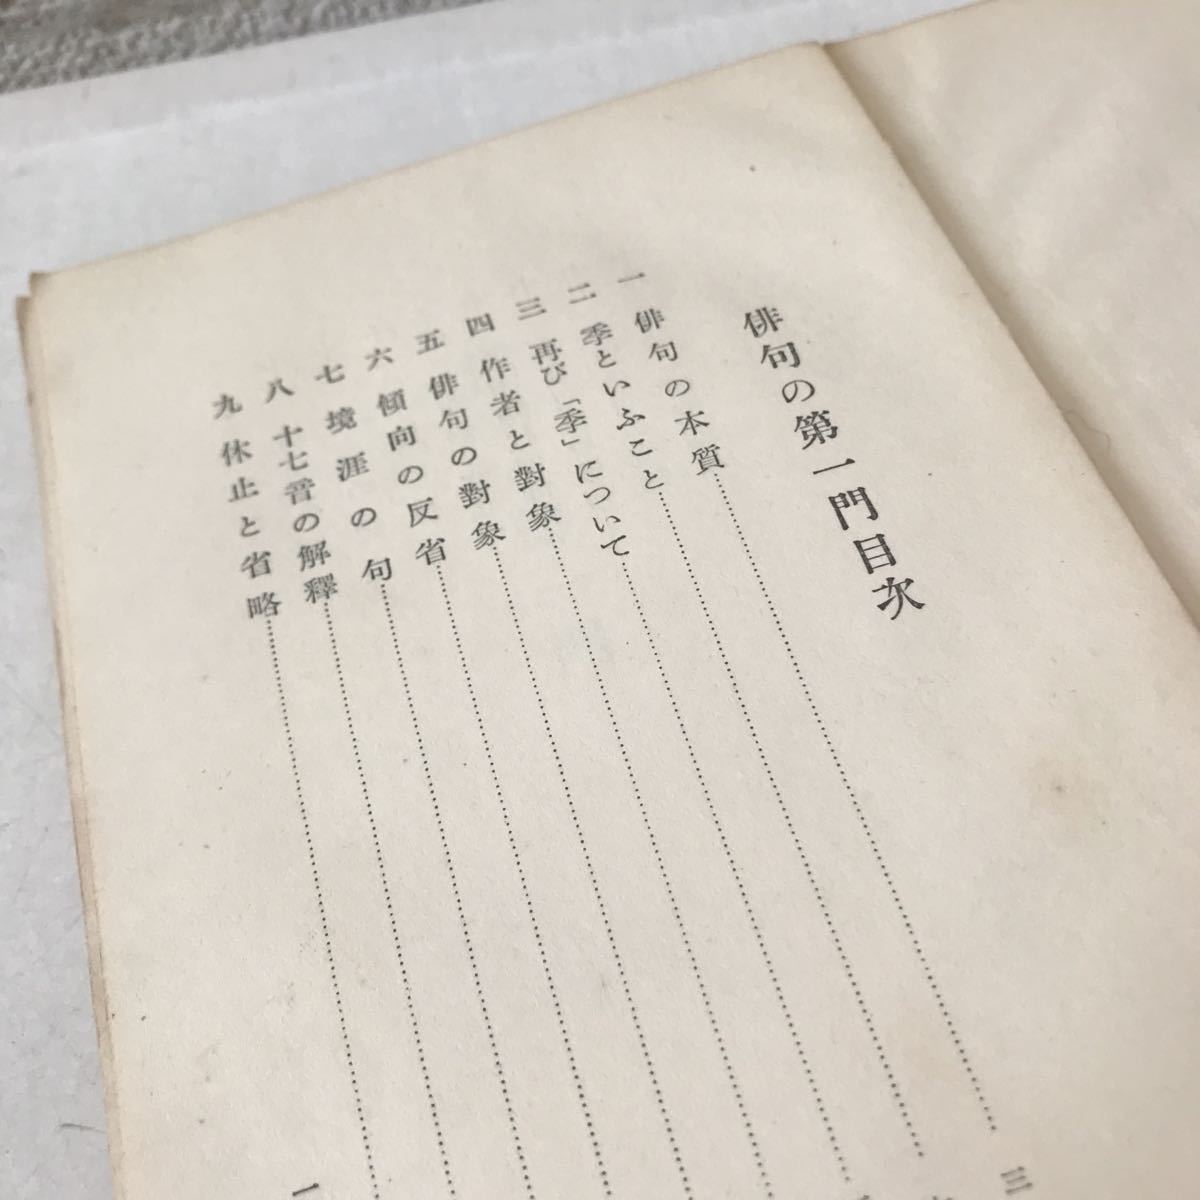 俳句の第一門目次
一 俳句の本質……三
二 季といふこと
三 再び「季」について
四 作者と對象
五 俳句の對象
六 傾向の反省
七 境涯の句
八 十七音の解釋
九 休止と省略